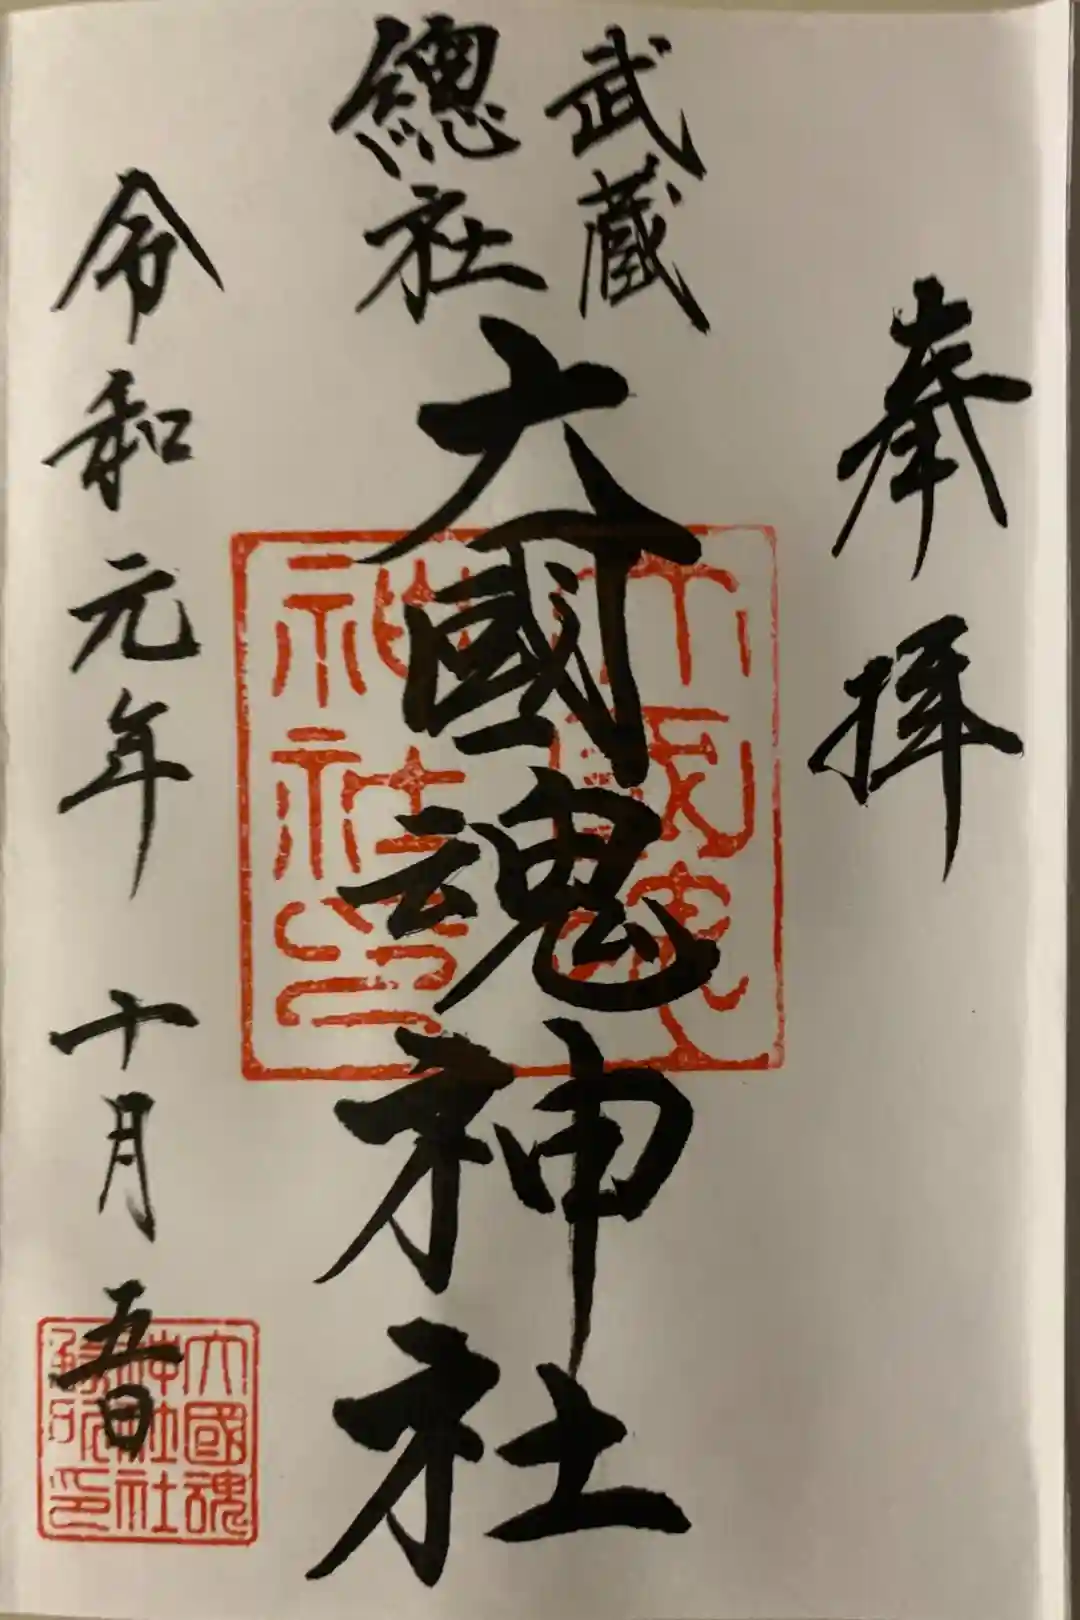 奉拝
武蔵
總社
大國魂神社
令和元年 十月 五日
大國魂
神社印
大國魂
神社社
務所印